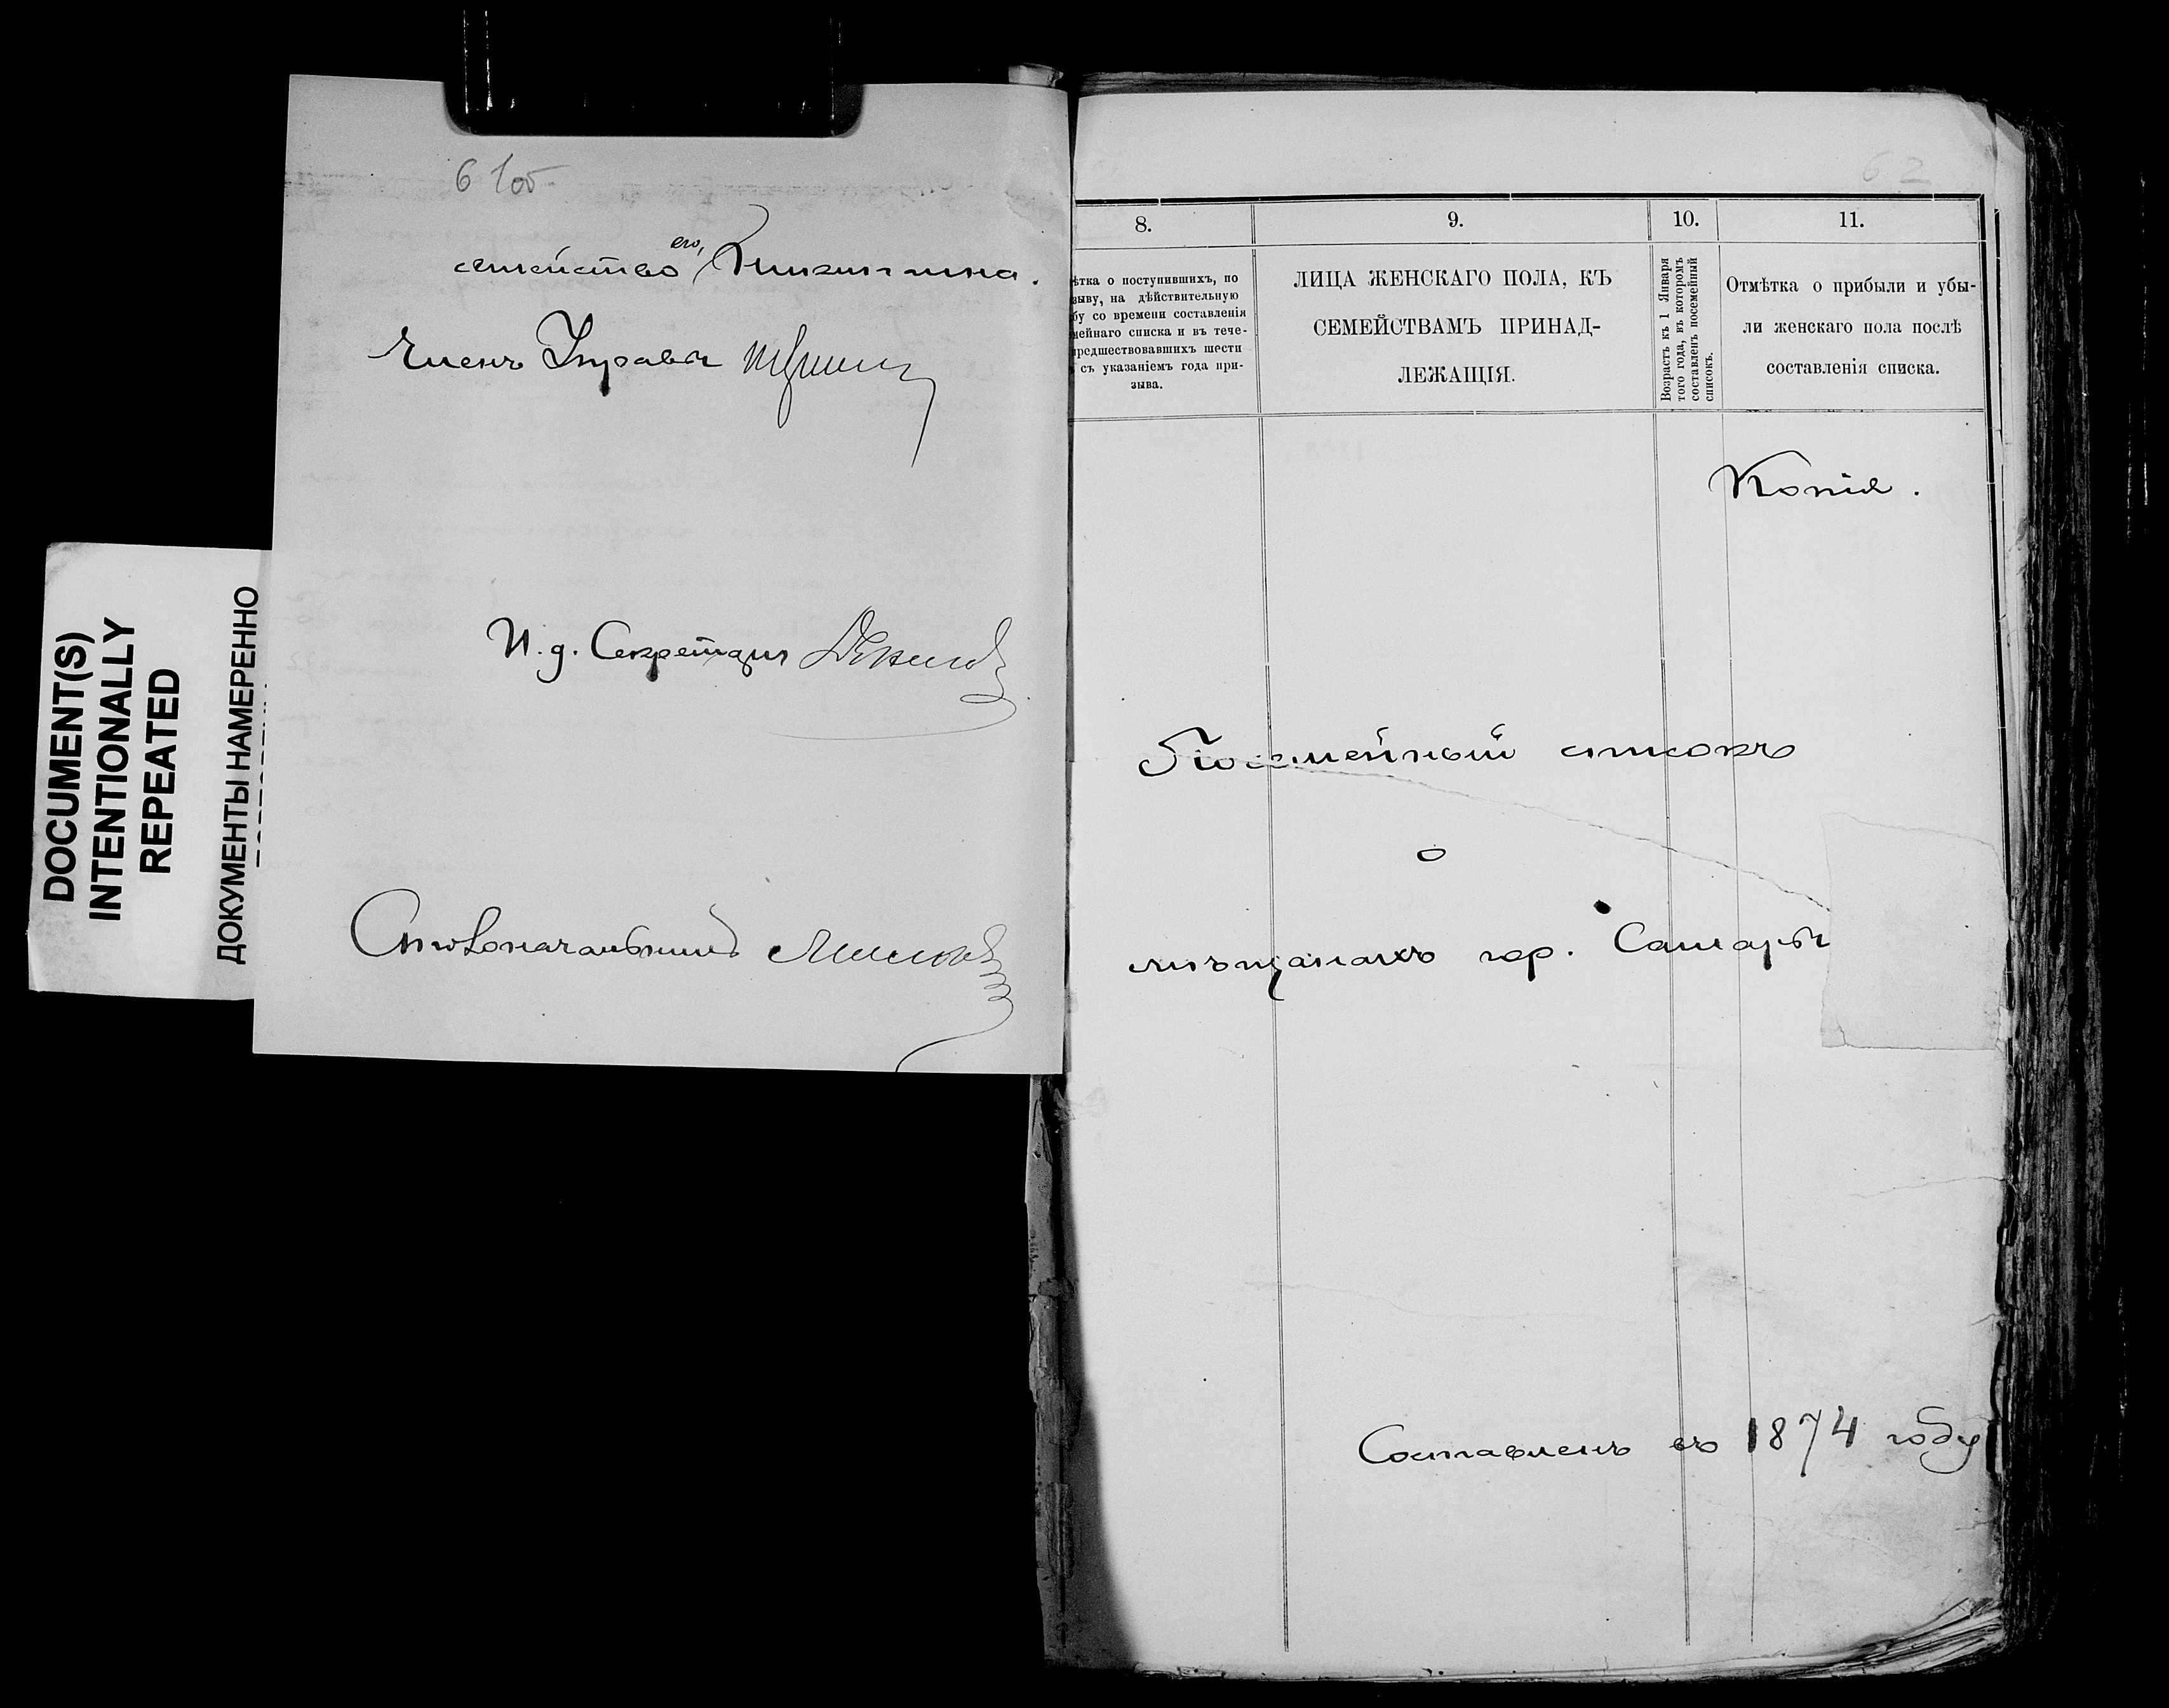 DOCUMENT(S)
INTENTIONALLY
REPEATED
ДОКУМЕНТЫ НАМЕРЕННО
61об
семейство его,
Членъ Управы
И. д. Секретаря
Столоначальникъ
62
8.
9.
10.
11.
ѣтка о поступившихъ, по
зыву, на дѣйствительную
бу со времени составленія
мейнаго списка и въ тече-
предшествовавшихъ шести
съ указаніемъ года при-
зыва.
ЛИЦА ЖЕНСКАГО ПОЛА, КЪ
СЕМЕЙСТВАМЪ ПРИНАД-
ЛЕЖАЩІЯ.
Возрастъ къ 1 Января
того года, въ которомъ
составленъ посемейный
списокъ.
Отмѣтка о прибыли и убы-
ли женскаго пола послѣ
составленія списка.
Копія.
Посемейный списокъ
о
мѣщанахъ гор. Самары
Составленъ въ 1874 году